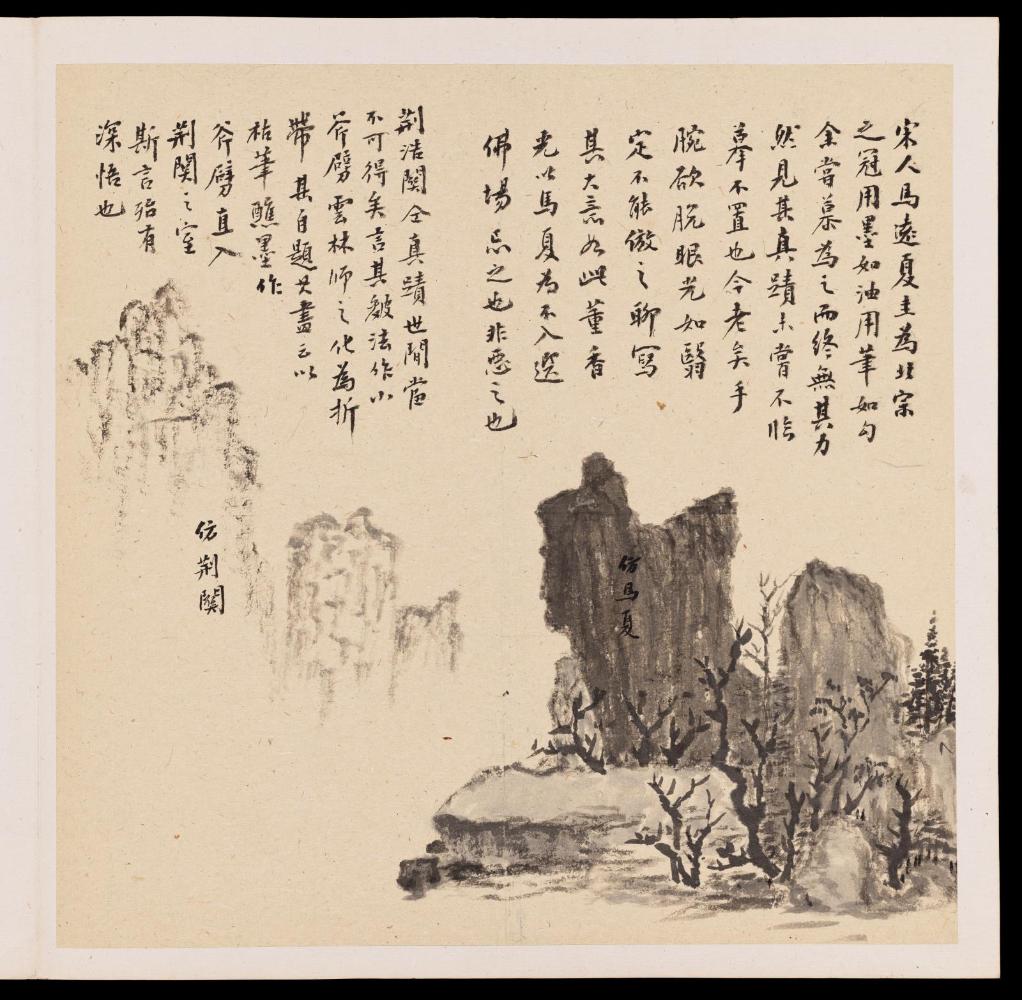 宋人馬遠夏圭為北宗
之冠用墨如油用筆如勾
余嘗慕為之而終無其力
然見其真蹟未嘗不臨
摹不置也今老矣手
腕欲脫眼光如翳
定不能倣之聊寫
其大意如此董香
光以馬夏為不入選
佛場忌之也非惡之也
荆浩關仝真蹟世間當
不可得矣言其皴法作小
斧劈雲林師之化為折
帶其自題其畫云以
枯筆醮墨作
斧劈直入
荆關之室
斯言殆有
深悟也
仿馬夏
仿荆關